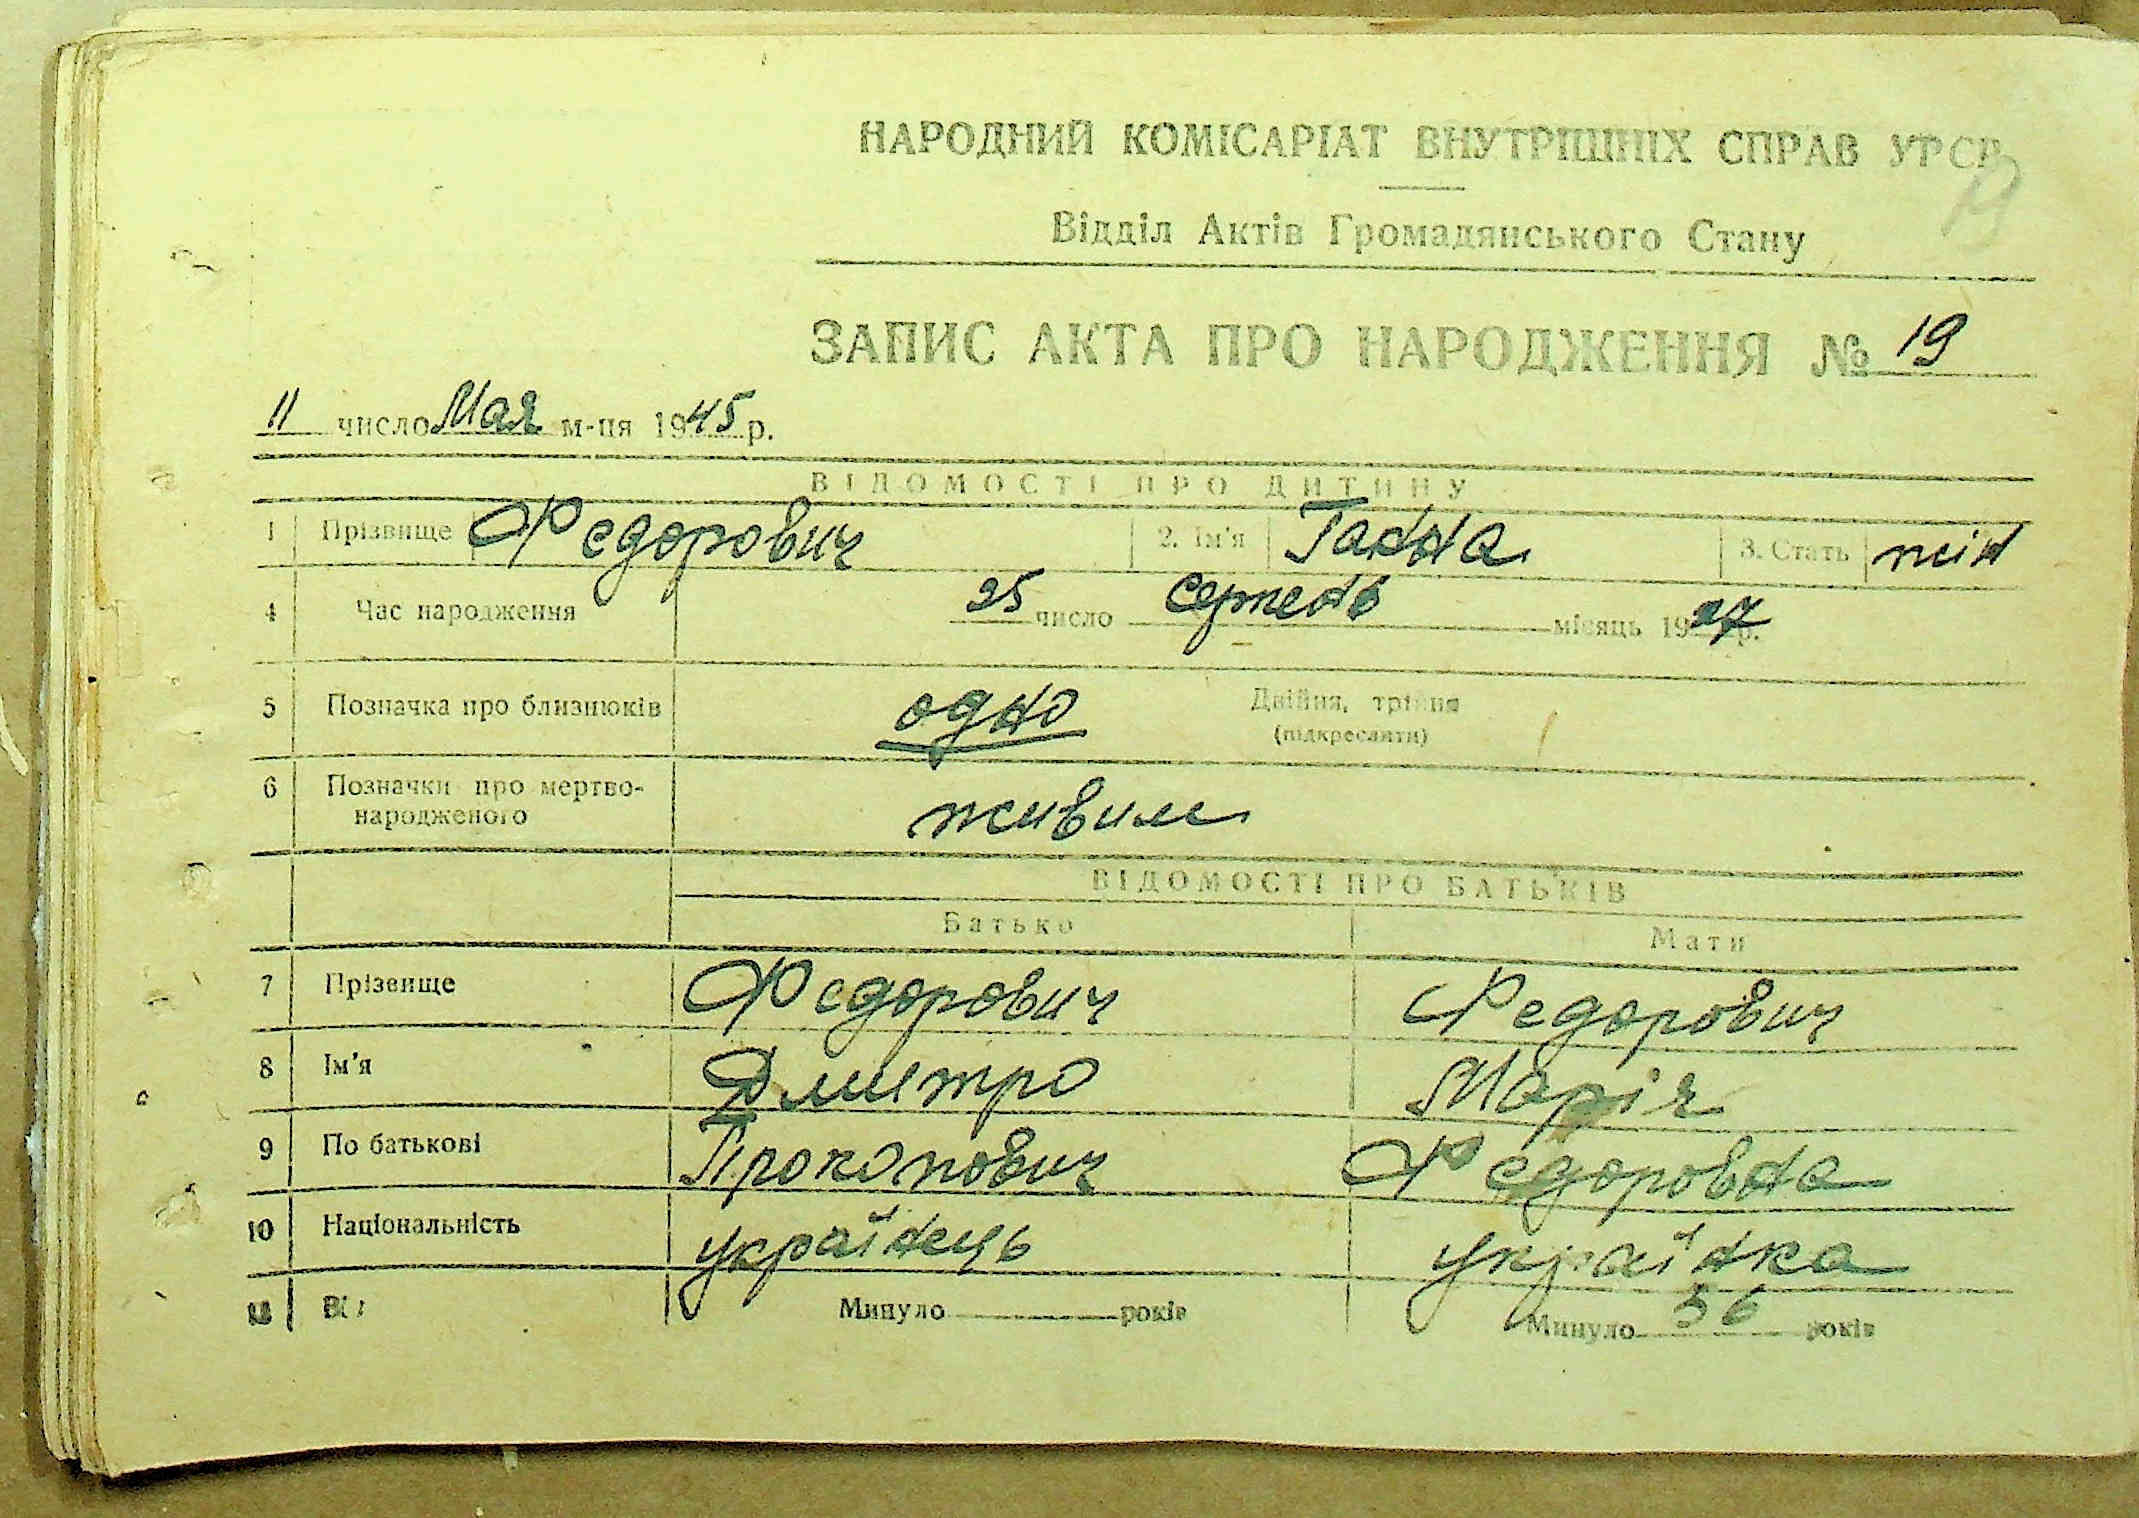 НАРОДНИЙ КОМІСАРІАТ ВНУТРІШНІХ СПРАВ УРСР
19
Відділ Актів Громадянського Стану
ЗАПИС АКТА ПРО НАРОДЖЕННЯ № 19
11 число Мая м-ця 1945 р.
ВІДОМОСТІ ПРО ДИТИНУ
1 Прізвище Федорович 2. Ім'я Ганна 3. Стать жін
4 Час народження 25 число серпень місяць 1927 р.
5 Позначка про близнюків одно Двійня, трійня
(підкреслити)
6 Позначки про мертво-
народженого живим
ВІДОМОСТІ ПРО БАТЬКІВ
Батько Мати
7 Прізвище Федорович Федорович
8 Ім'я Дмитро Марія
9 По батькові Прокопович Федоровна
10 Національність українець українка
11 Минуло років Минуло 56 років